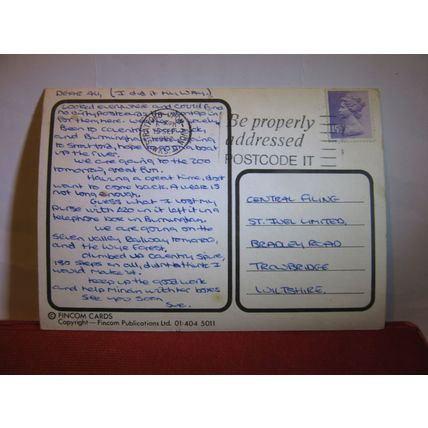 DEAR ALL, (I did it MY WAY.)
Looked everywhere and could find
no dirty postcards
for them here. We
Been to Coventry
and Birmingham
to Stratford, hope to go on a boat
up the river.
We are going to the zoo
tomorrow, great fun.
Having a great time, dont
want to come back. A week is
not long enough.
Guess what I lost my
purse with £20 in it left it in a
telephone box in Birmingham.
We are going on the
Seven Valley Railway tomorrow,
and the Wyre Forest,
Climbed up Coventry Spire,
180 steps in all, didnt think I
would make it.
Keep up the good work
and help Miriam with her boxes
See you soon
Sue.
© FINCOM CARDS
Copyright— Fincom Publications Ltd. 01-404 5011
Be properly
addressed
POSTCODE IT
CENTRAL FILING
ST. IVEL LIMITED,
BRADLEY ROAD
TROWBRIDGE
WILTSHIRE.